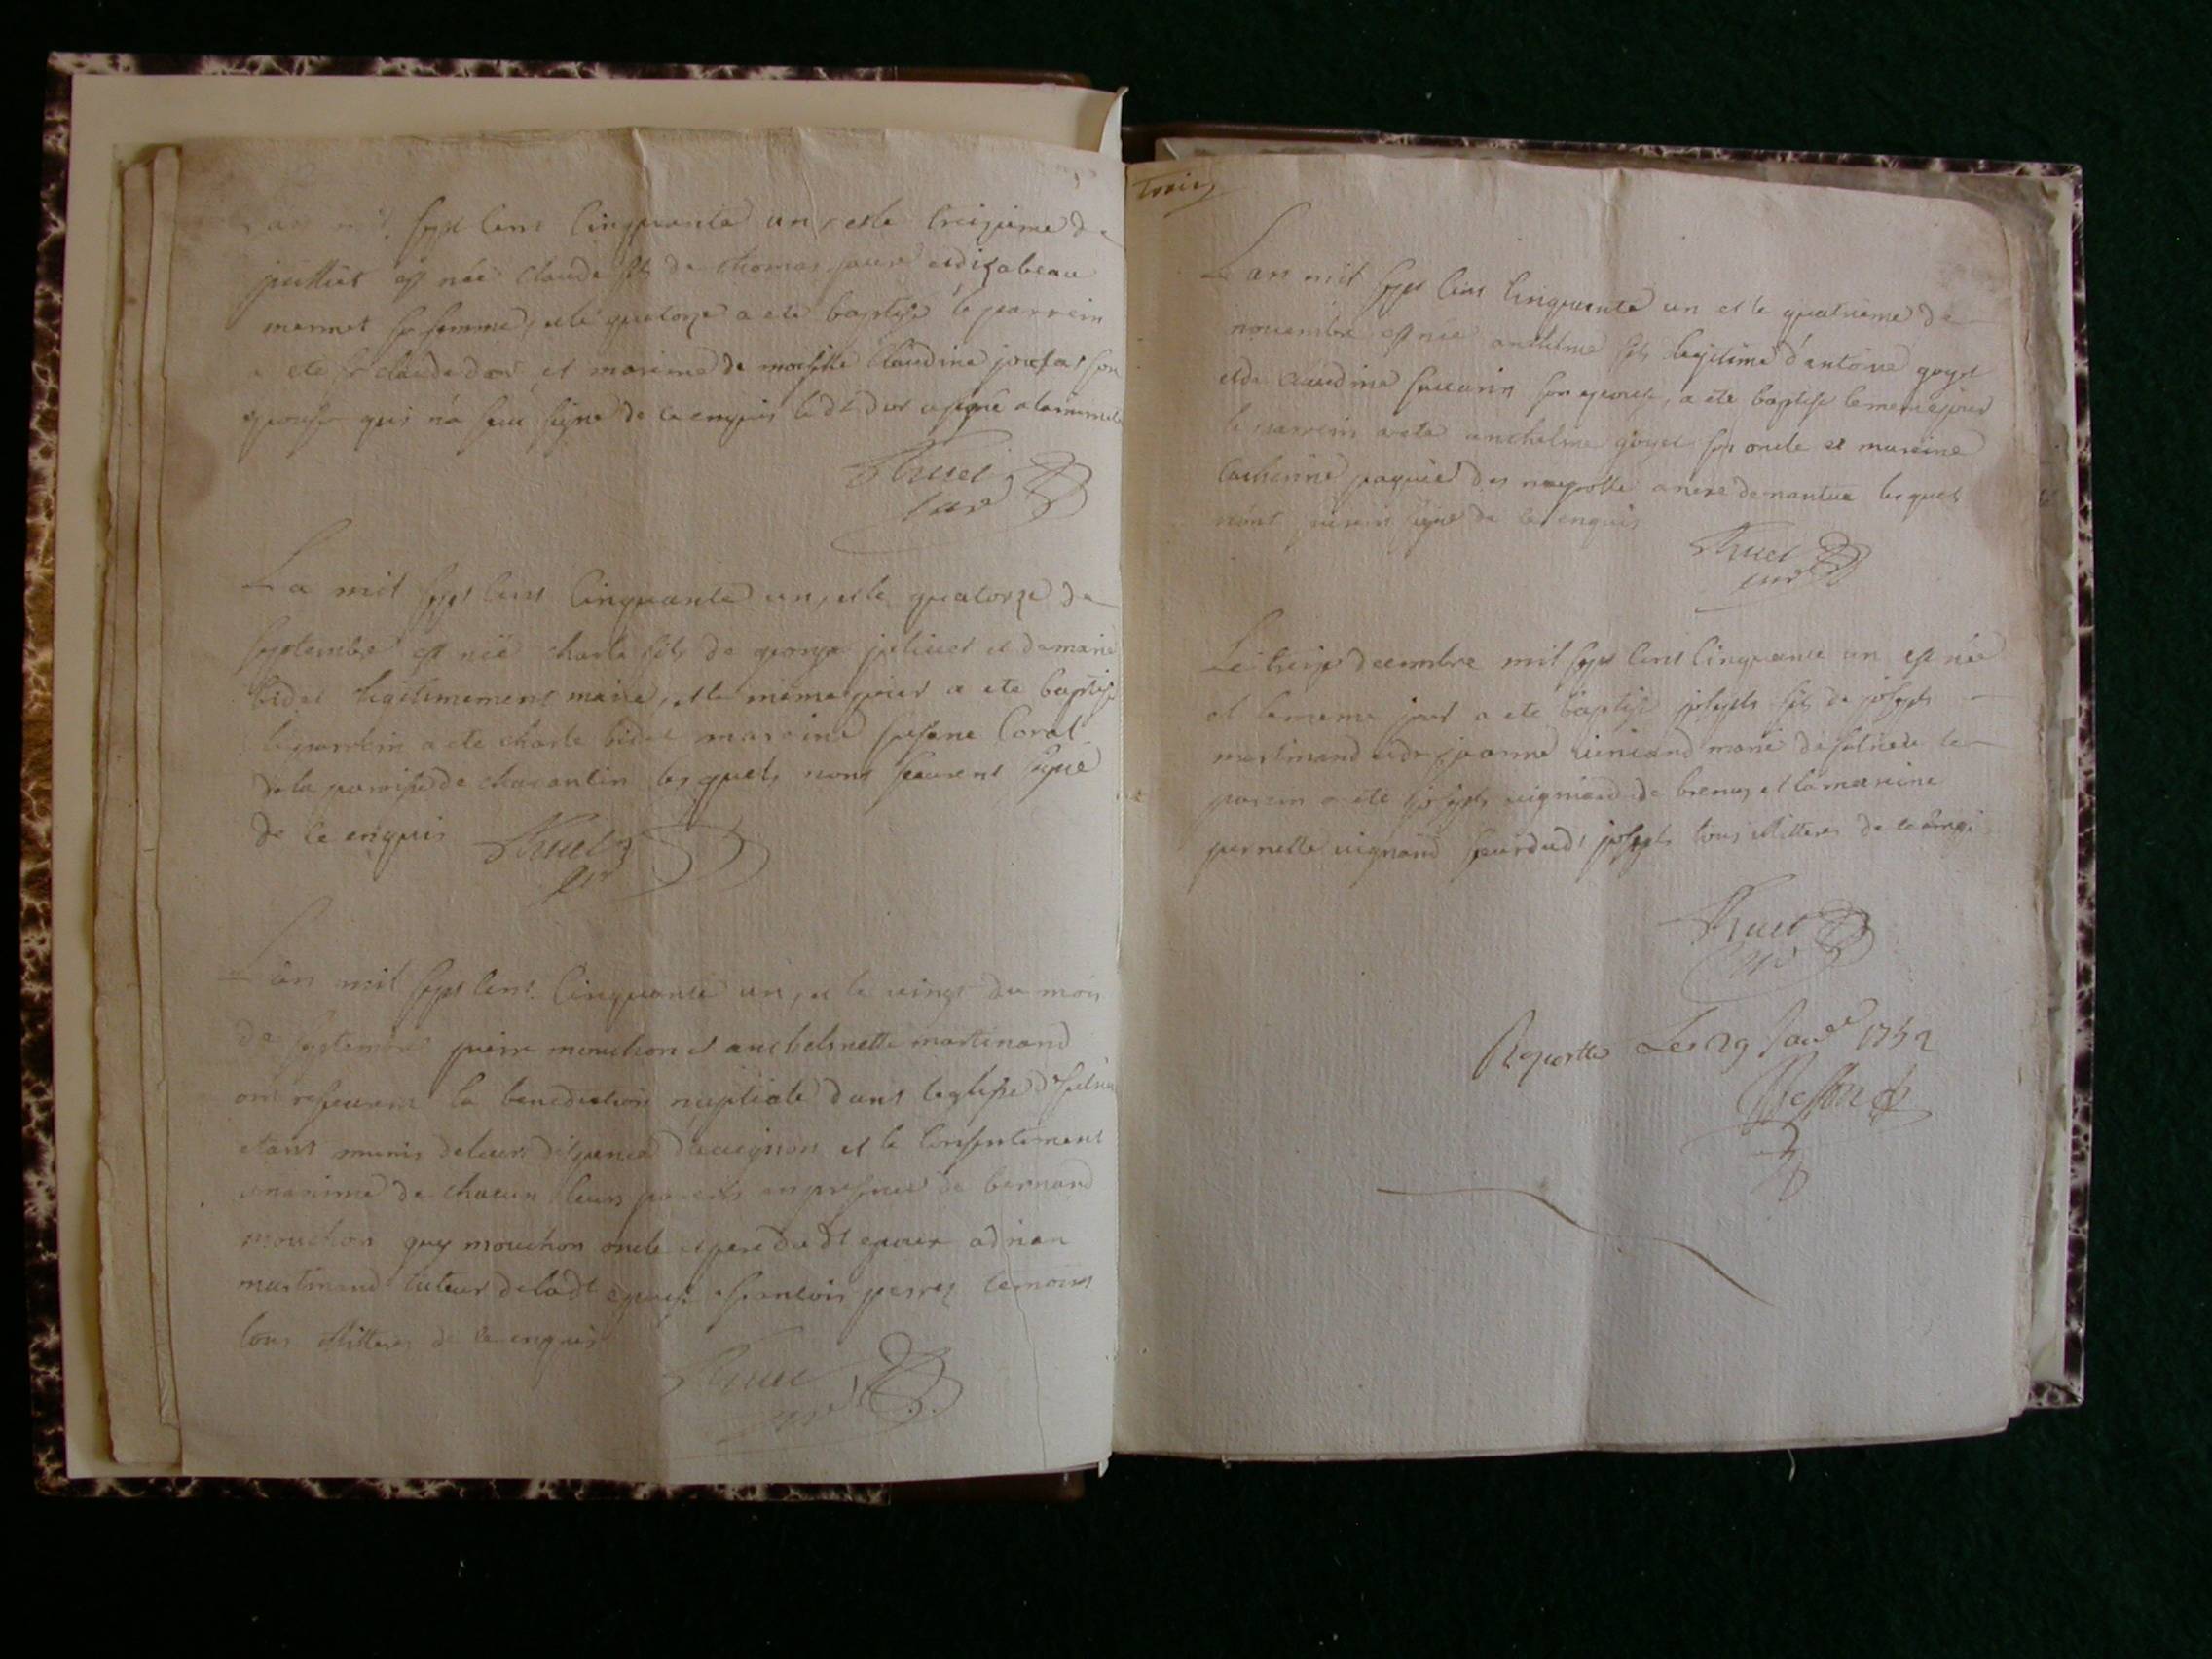 L'an mil sept cens cinquante un, et le treizieme de
juilliet est née claude fils de thomas favre et dizabeau
mermet sa femme, et le quatorze a ete baptisé le parrein
a ete sr claude dor et mareine de moiselle claudine josefat son
epouse qui n'a sceu signé de ce enquis le dt dor a signé a la minutte
Curé
La mil sept cens cinquante un, et le quatorze de
septembre est néë charle fils de george jolivet et de marie
bidel legitimement marié, et le meme jour a ete baptisé
le parrein a ete charle bidel mareine susane Coral
de la paroisse de chavantin lesquels nont sceurent signé
de ce enquis
cur
L'an mil sept cens cinquante un, et le vingt du mois
de septembre pierre mouchon et anthelmette martinand
ont resseurent la benediction nuptiale dans leglise de
etant munis de leurs dispence d'avignon et le consentement
unanime de chacun leurs parents en presence de bernard
mouchon guy mouchon oncle et pere du dt epoux adrian
martinand tuteur de la dt epouse francois perret temoins
tous illitteres de ce enquis
curé
trois
L'an mil sept cens cinquante un et le quatrieme de
novembre est née anthelme fils legitime d'antoine goyet
et de claudine savarin son epouse, a ete baptisé le meme jour
le parrein a ete anthelme goyet son oncle et mareine
catherine paquier des neyrolle anexe de nantua lesquels
nont signé de ce enquis
curé
Le treize decembre mil sept cens cinquante un est née
et le meme jour a ete baptisé joseph fils de joseph
martinand et de jeanne marié de le
parein a ete joseph vigniand de brenos et la mareine
pernette vignand soeur du dt joseph tous illitteres de ce enqui
Curé
Reportté Le 29 Janer 1752